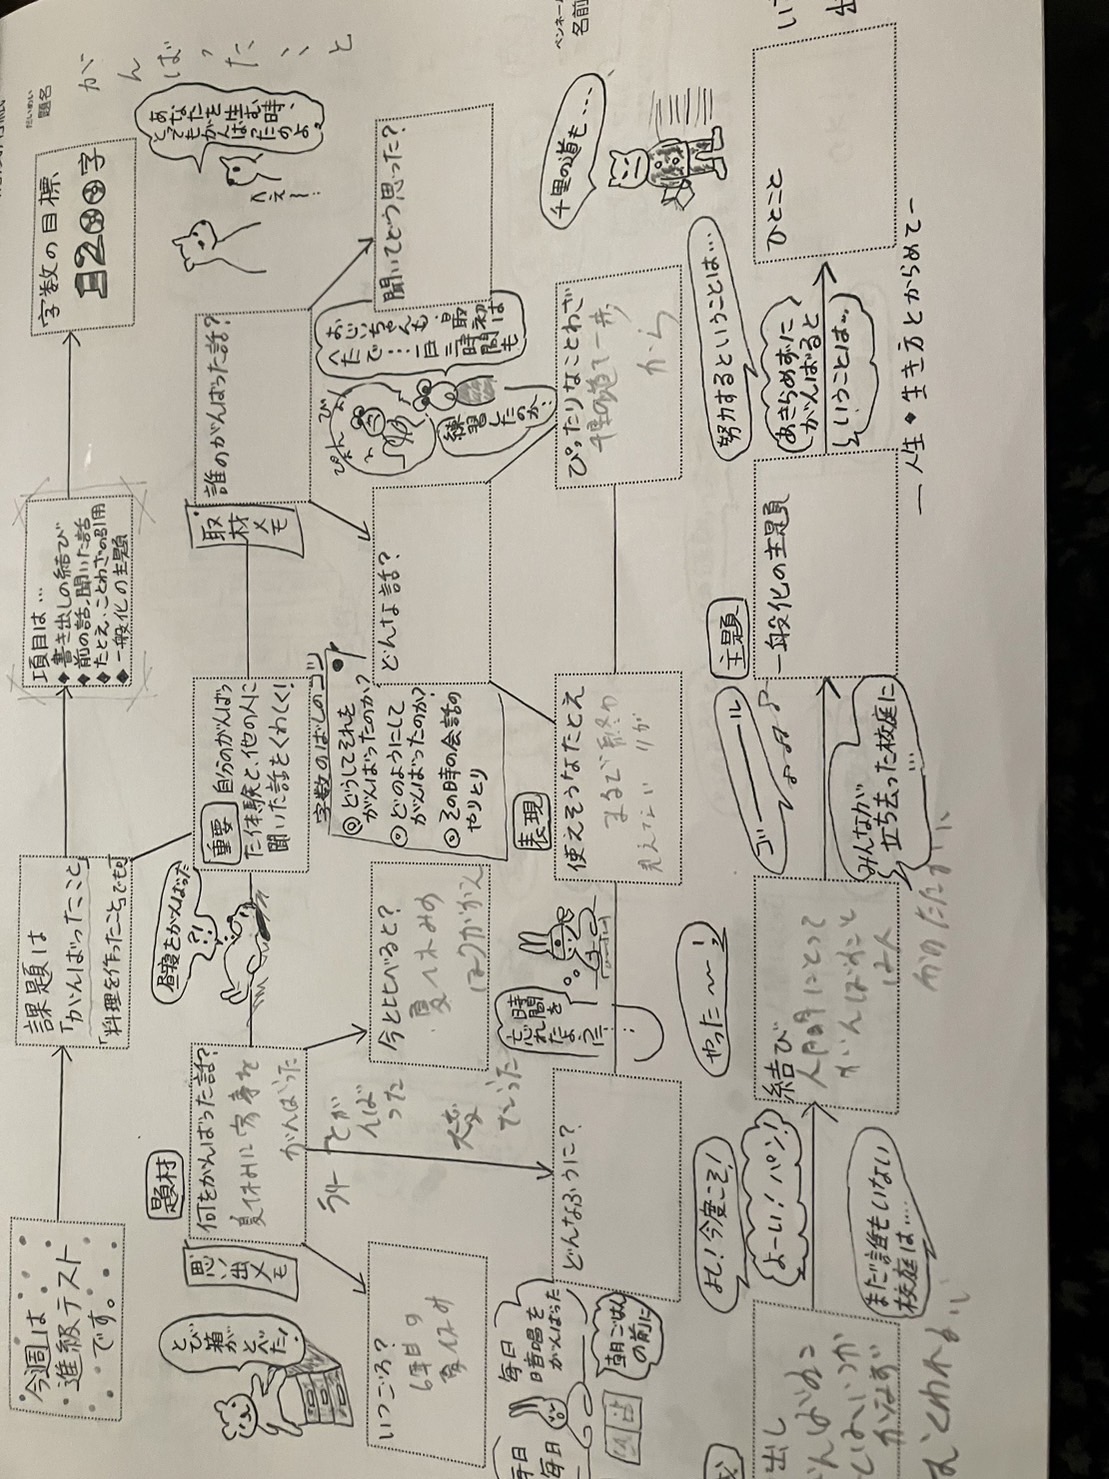 今週は
進級テスト
です。
課題は
「がんばったこと」
「料理を作ったこと」でも可
項目は…
◆書き出しの結び
◆前の話、聞いた話
◆たとえ、ことわざの引用
◆一般化の主題
字数の目標
1200字
だいめい
題名
がんばったこと
思い出メモ
とび箱が
とべた!
題材
何をがんばった話?
夏休みに家事を
がんばった
昼寝をがんばった
?!
重要
自分のがんばっ
た体験と、他の人に
聞いた話をくわしく!
取材メモ
誰のがんばった話?
あなたを生む時、
とてもがんばったのよ。
へぇ〜!
いつごろ?
6年目の
夏休み
今と比べると?
・夏休みの
ほうががん
がんば
った
だった
字数のばしのコツ
◎どうしてそれを
がんばったのか?
◎どのようにして
がんばったのか?
◎その時の会話の
やりとり
どんな話?
おじいちゃんも最初は
へたで…一日三時間も
練習したのか…
聞いてどう思った?
毎日
暗唱を
がんばった
朝ごはん
の前に
毎日
毎日
どんなふうに?
時間を
忘れ
たように…
表現
使えそうなたとえ
まるで終わ
りが
見えない
ぴったりなことわざ
千里の道も一歩
から
千里の道も…
ペンネーム
名前
よし!今度こそ!
よーい!パン!
まだ誰もいない
校庭は……
やった〜〜!
結び
人間にとって
がんばること
は人
ゴーーール
みんなが
立ち去った校庭に
…
主題
一般化の主題
努力するということは…
あきらめずに
がんばると
いうことは…
ひとこと
―人生◆生き方とからめて―